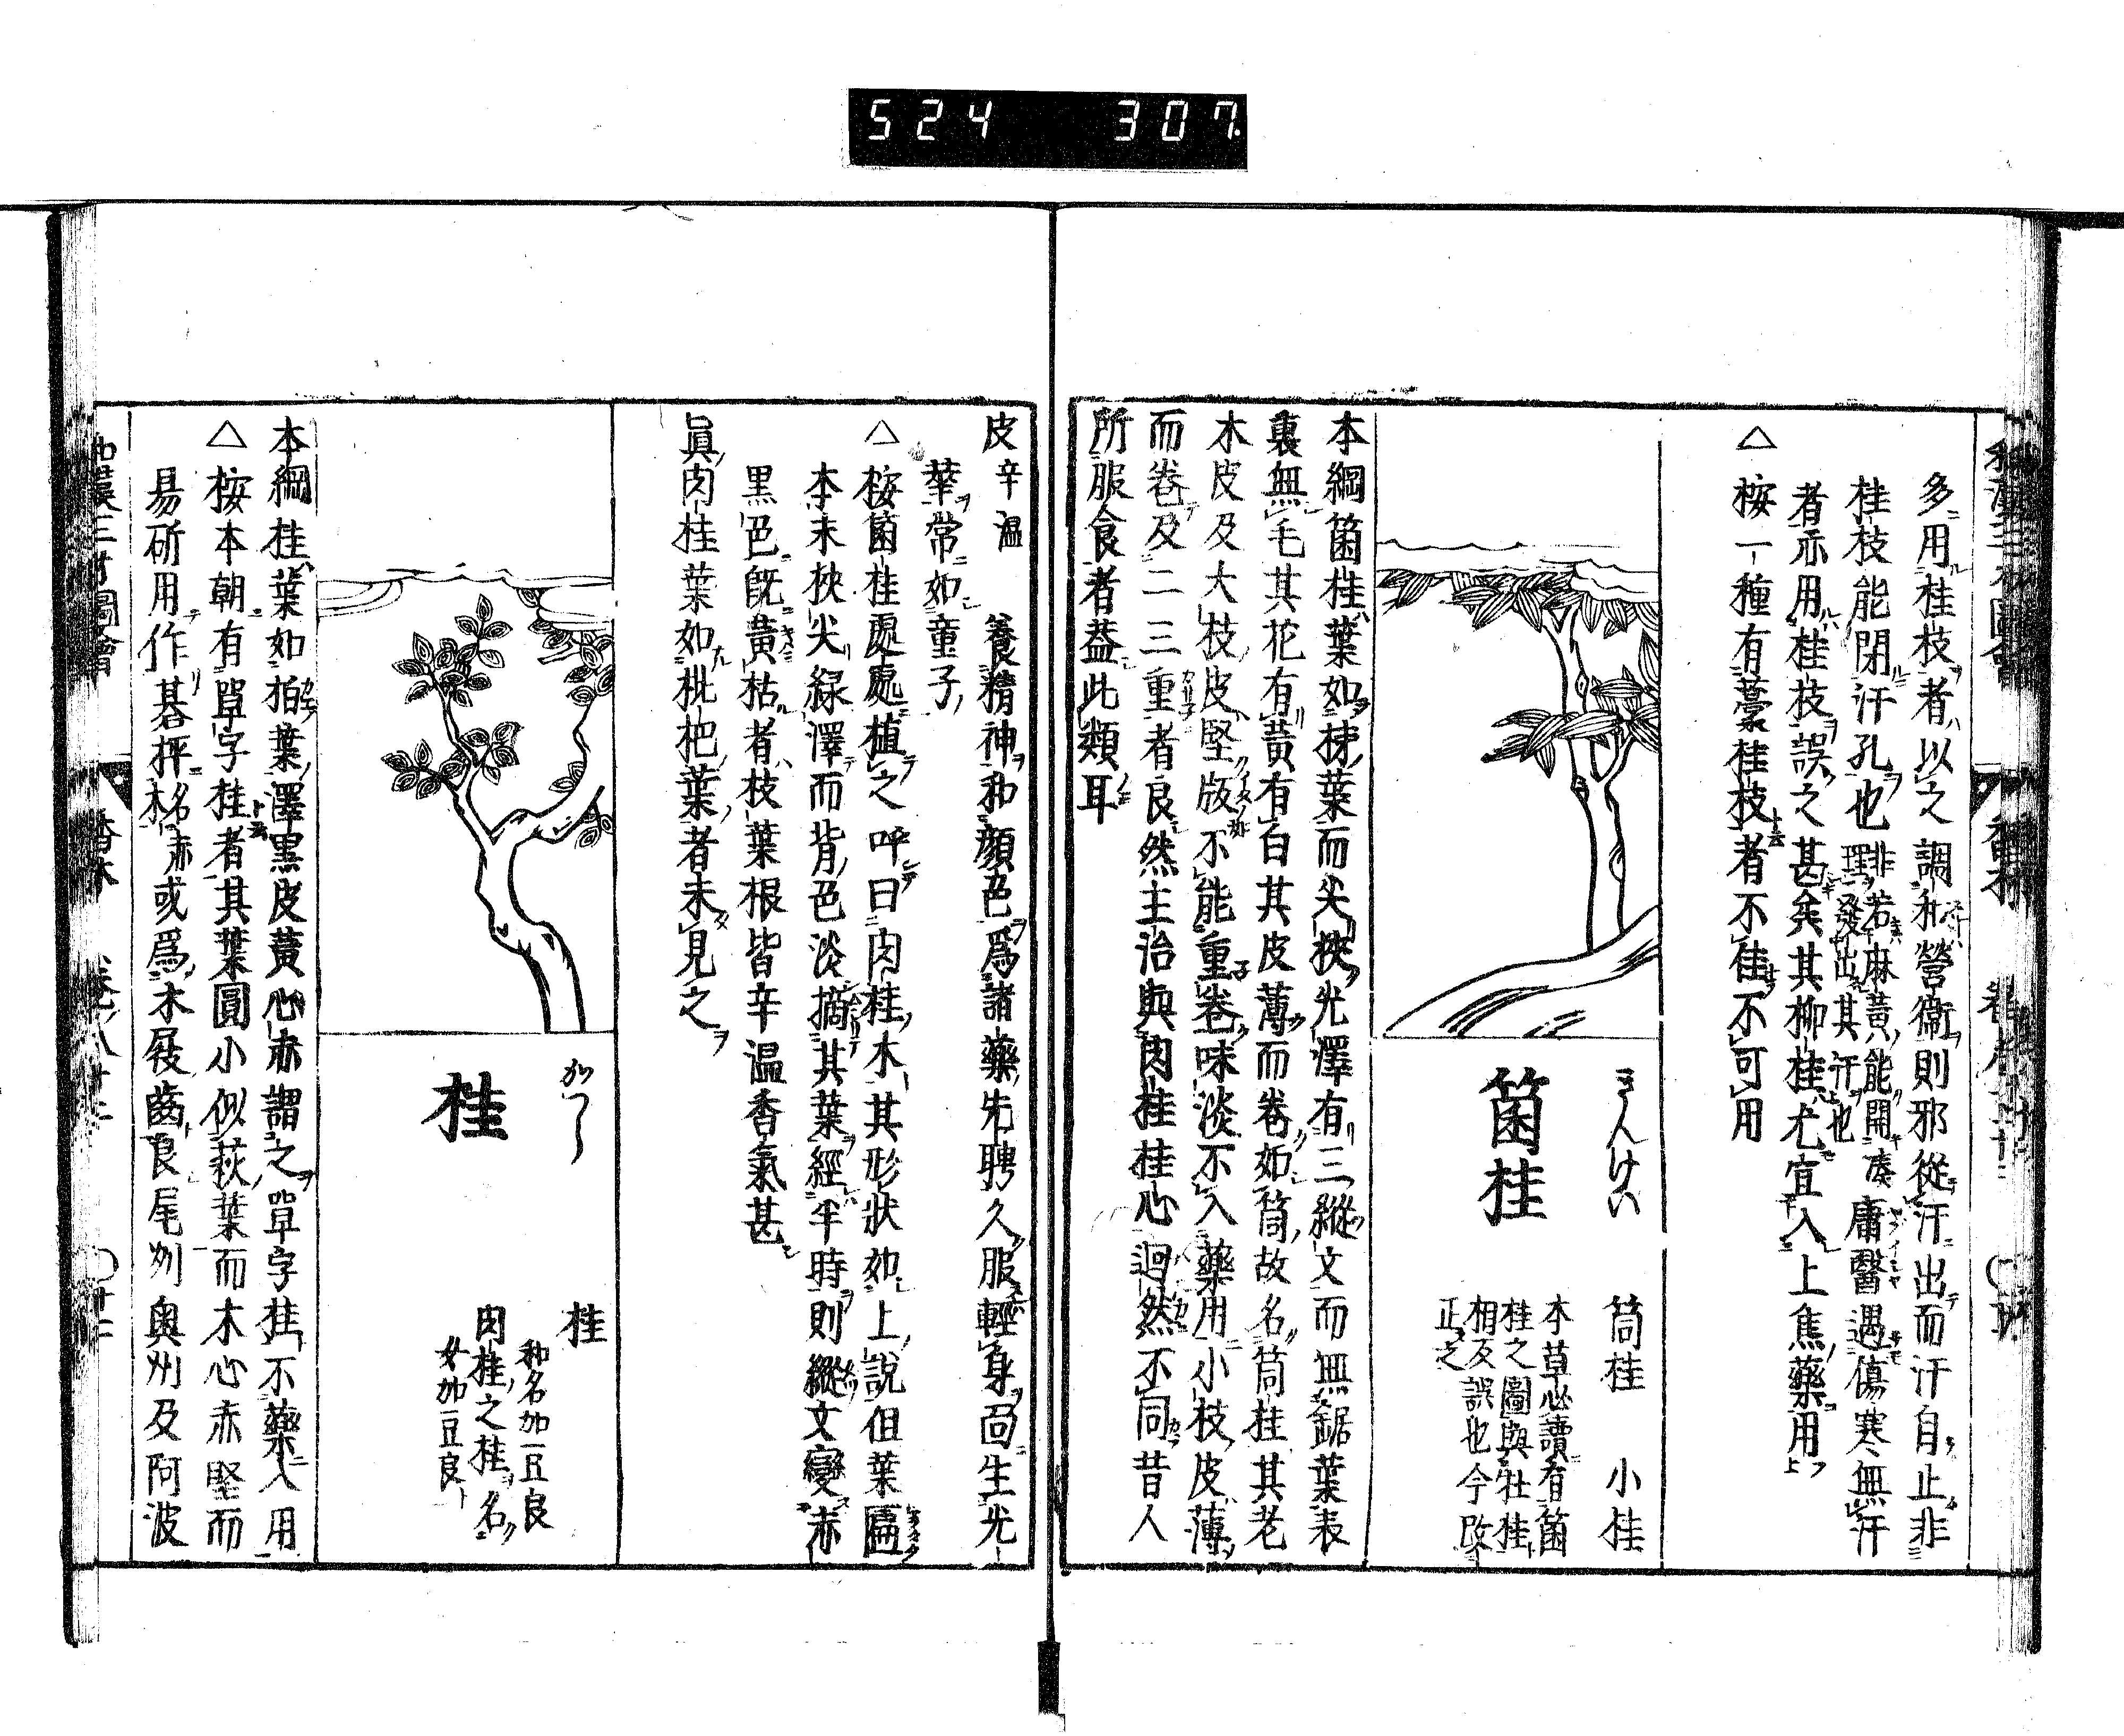 524 307
多用桂枝者以之調和營衞則邪從汗出而汗自止非
桂枝能閉汗孔也非若麻黃能開湊
理發出其汗也庸醫遇傷寒無汗
者亦用桂枝誤之甚矣其柳桂尤宜入上焦藥用
△按一種有藁桂枝者不佳不可用
きんけい
箘桂
筒桂 小桂
本草必讀有箘
桂之圖與牡桂
相反誤也今改
正之
本綱箘桂葉如柹葉而尖狹光澤有三縱文而無鋸葉表
裏無毛其花有黃有白其皮薄而卷如筒故名筒桂其老
木皮及大枝皮堅版不能重卷味淡不入藥用小枝皮薄
而卷及二三重者良然主治與肉桂桂心迥然不同昔人
所服食者葢此類耳
皮辛溫 養精神和顏色爲諸藥先聘久服輕身面生光
華常如童子
△按箘桂處處植之呼曰肉桂木其形狀如上說但葉匾
本末狹尖綠澤而背色淡摘其葉經半時則縱文變赤
黑色旣黃枯者枝葉根皆辛溫香氣甚
眞肉桂葉如枇杷葉者未見之
かつら
桂
桂
和名加豆良
肉桂之桂名
女加豆良
本綱桂葉如柏葉澤黑皮黃心赤謂之單字桂不藥入用
△按本朝有單字桂者其葉圓小似萩葉而木心赤堅而
易斫用作碁枰名赤木或爲木屐齒良尾州奧州及阿波
和漢三才圖會
香木
卷八十二